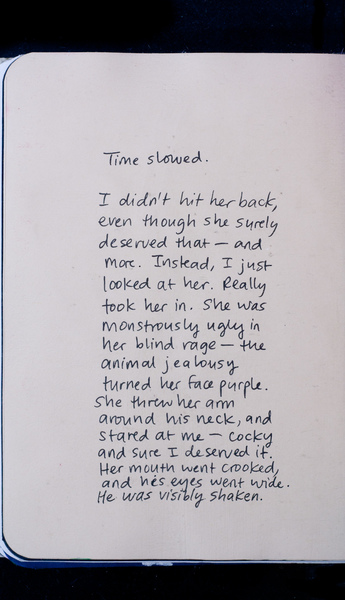 Time slowed.
I didn't hit her back,
even though she surely
deserved that — and
more. Instead, I just
looked at her. Really
took her in. She was
monstrously ugly in
her blind rage — the
animal jealousy
turned her face purple.
She threw her arm
around his neck, and
stared at me — cocky
and sure I deserved it.
Her mouth went crooked,
and his eyes went wide.
He was visibly shaken.